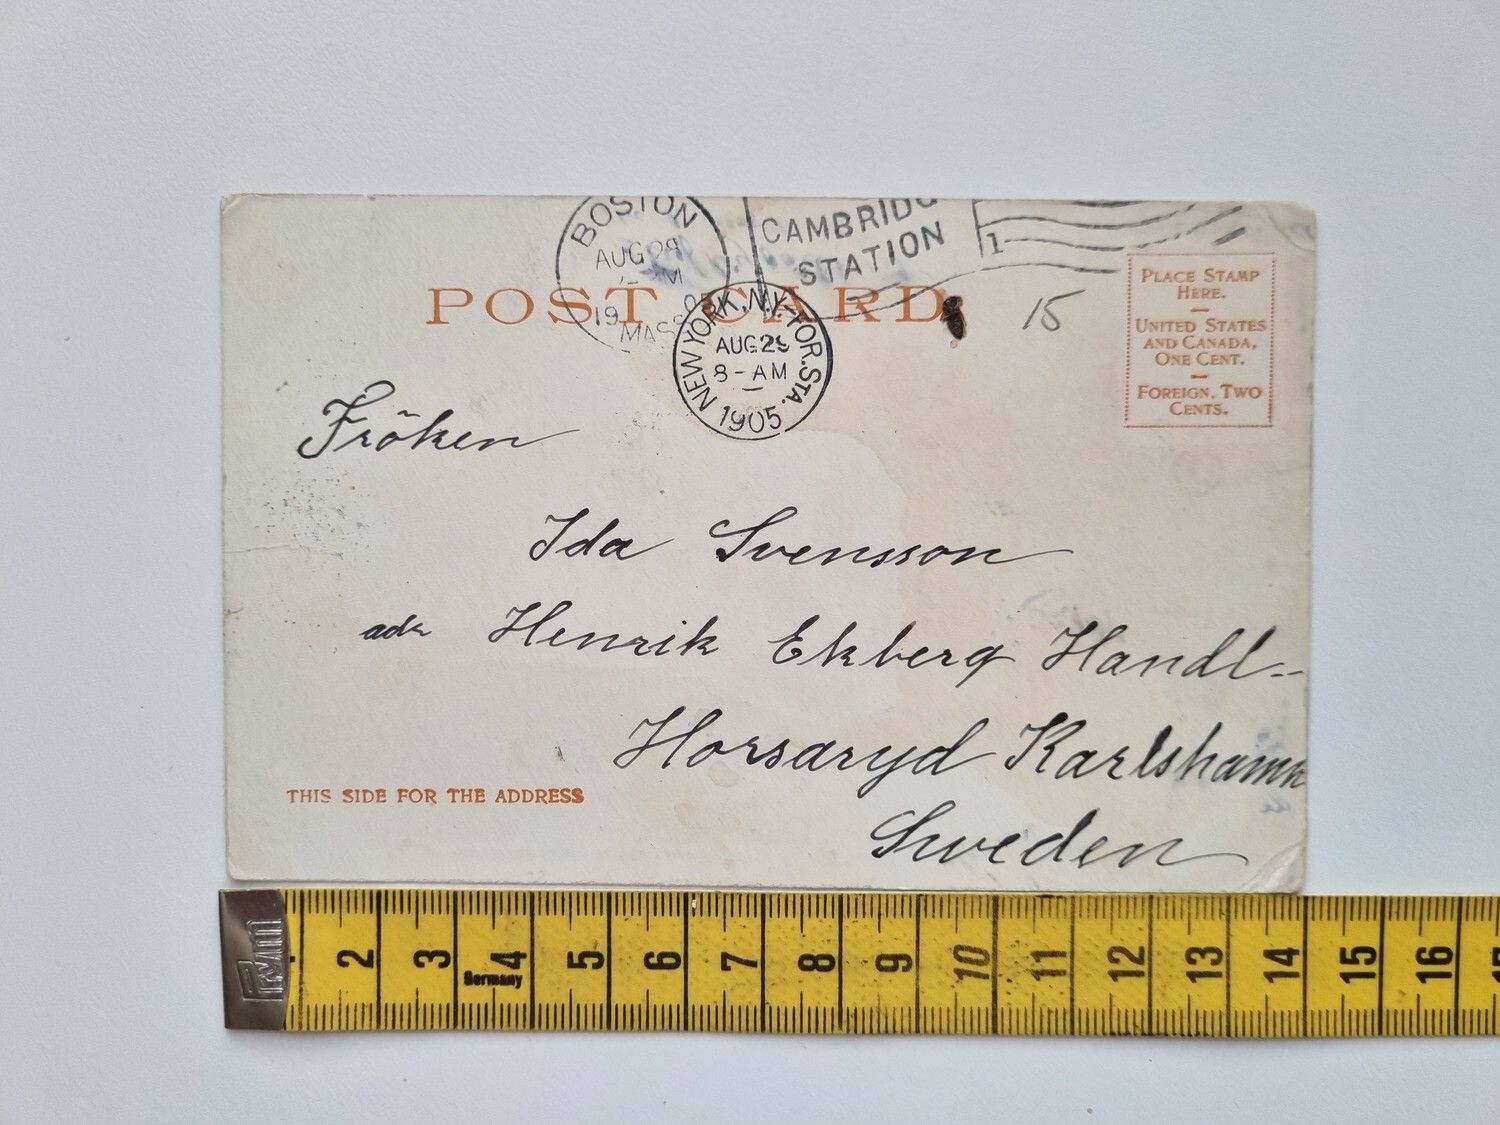 BOSTON
AUG 28
19 05
MASS
CAMBRIDG
STATION
1
POST CARD.
NEW YORK, N.Y.-FOR. STA.
AUG 29
8-AM
1905
15
PLACE STAMP
HERE.
UNITED STATES
AND CANADA,
ONE CENT.
FOREIGN, TWO
CENTS.
Fröken
Ida Svensson
adr Henrik Ekberg Handl-
Horsaryd Karlshamn
Sweden
THIS SIDE FOR THE ADDRESS
Prym
2 3 4 5 6 7 8 9 10 11 12 13 14 15 16
Germany